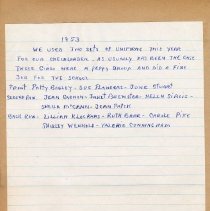 1953
We used two sets of uniforms this year
for our cheerleaders. As usual has been the case
these girls were a peppy group and did a fine
job for the school.
Front Patty Bagley - Sue Flanders - June Stuart
Second Row. Jean - Janet Brewster - Helen
Sheila McCarthy - Jean Patch
Back Row. Lillian - Ruth Barr - Carole Pike
Shirley - Valerie Cunningham